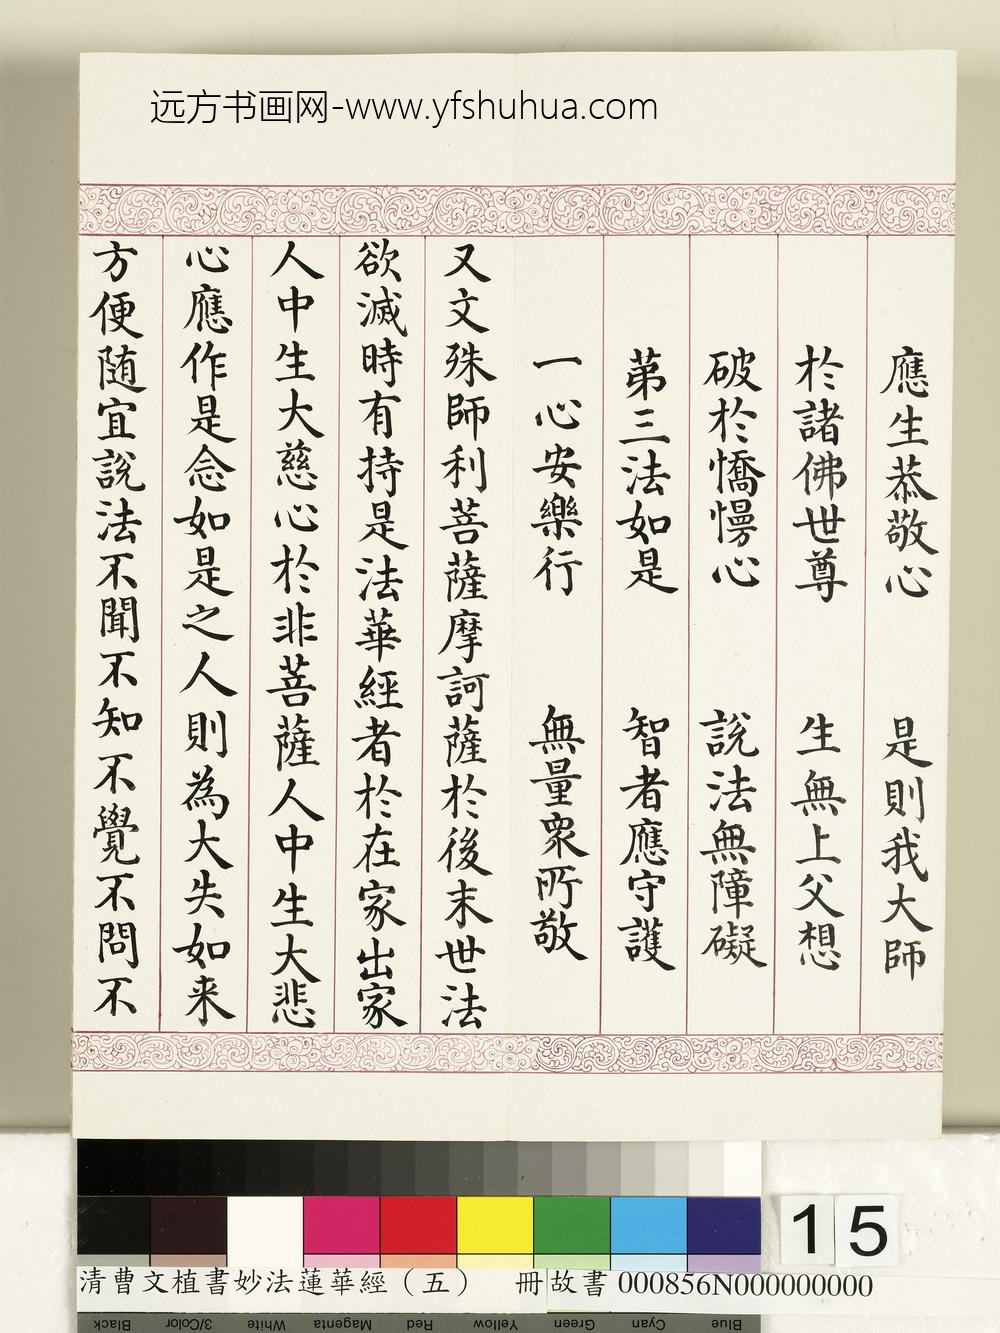 远方书画网-www.yfshuhua.com
應生恭敬心　是則我大師
於諸佛世尊　生無上父想
破於憍慢心　說法無障礙
苐三法如是　智者應守護
一心安樂行　無量衆所敬
又文殊師利菩薩摩訶薩於後末世法
欲滅時有持是法華經者於在家出家
人中生大慈心於非菩薩人中生大悲
心應作是念如是之人則為大失如来
方便随宜說法不聞不知不覺不問不
15
清曹文植書妙法蓮華經（五）　冊 故書 000856N000000000
Black 3/Color White Magenta Red Yellow Green Cyan Blue